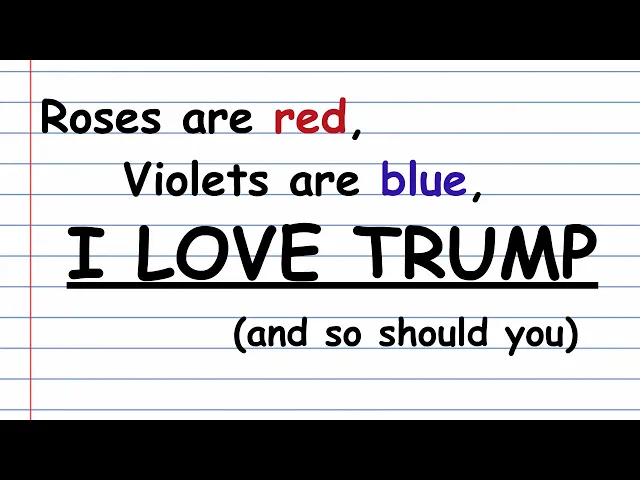 Roses are red,
Violets are blue,
I LOVE TRUMP
(and so should you)